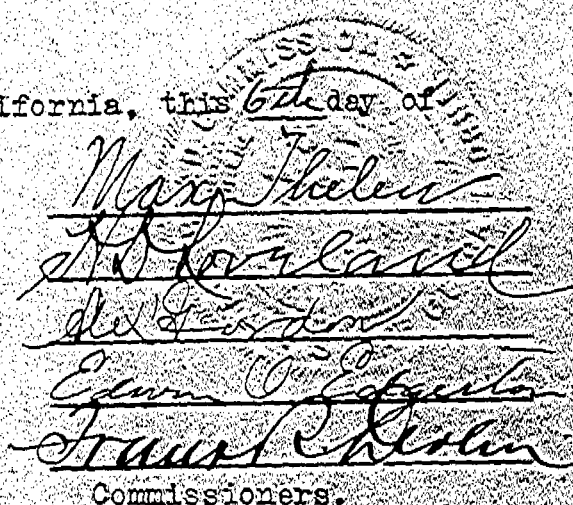 ifornia, this 6th day of
Max Thelen
H D Loveland
Alex Gordon
Edwin O. Edgerton
Frank R Devlin
Commissioners.